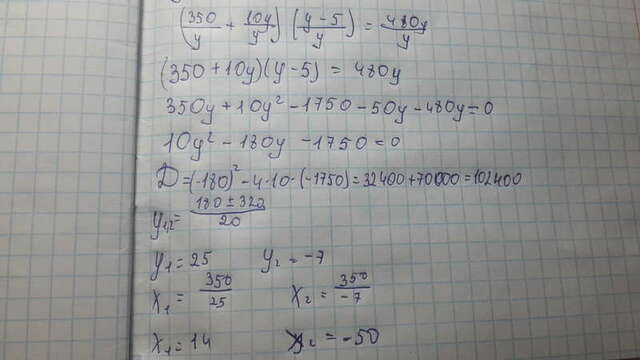 (350/y + 10y/y) (y-5/y) = 480y/y
(350+10y)(y-5) = 480y
350y+10y²-1750-50y-480y=0
10y²-180y-1750=0
D=(-180)²-4·10·(-1750)=32400+70000=102400
y1,2= 180±320/20
y1=25 y2=-7
x1= 350/25 x2= 350/-7
x1=14 x2=-50